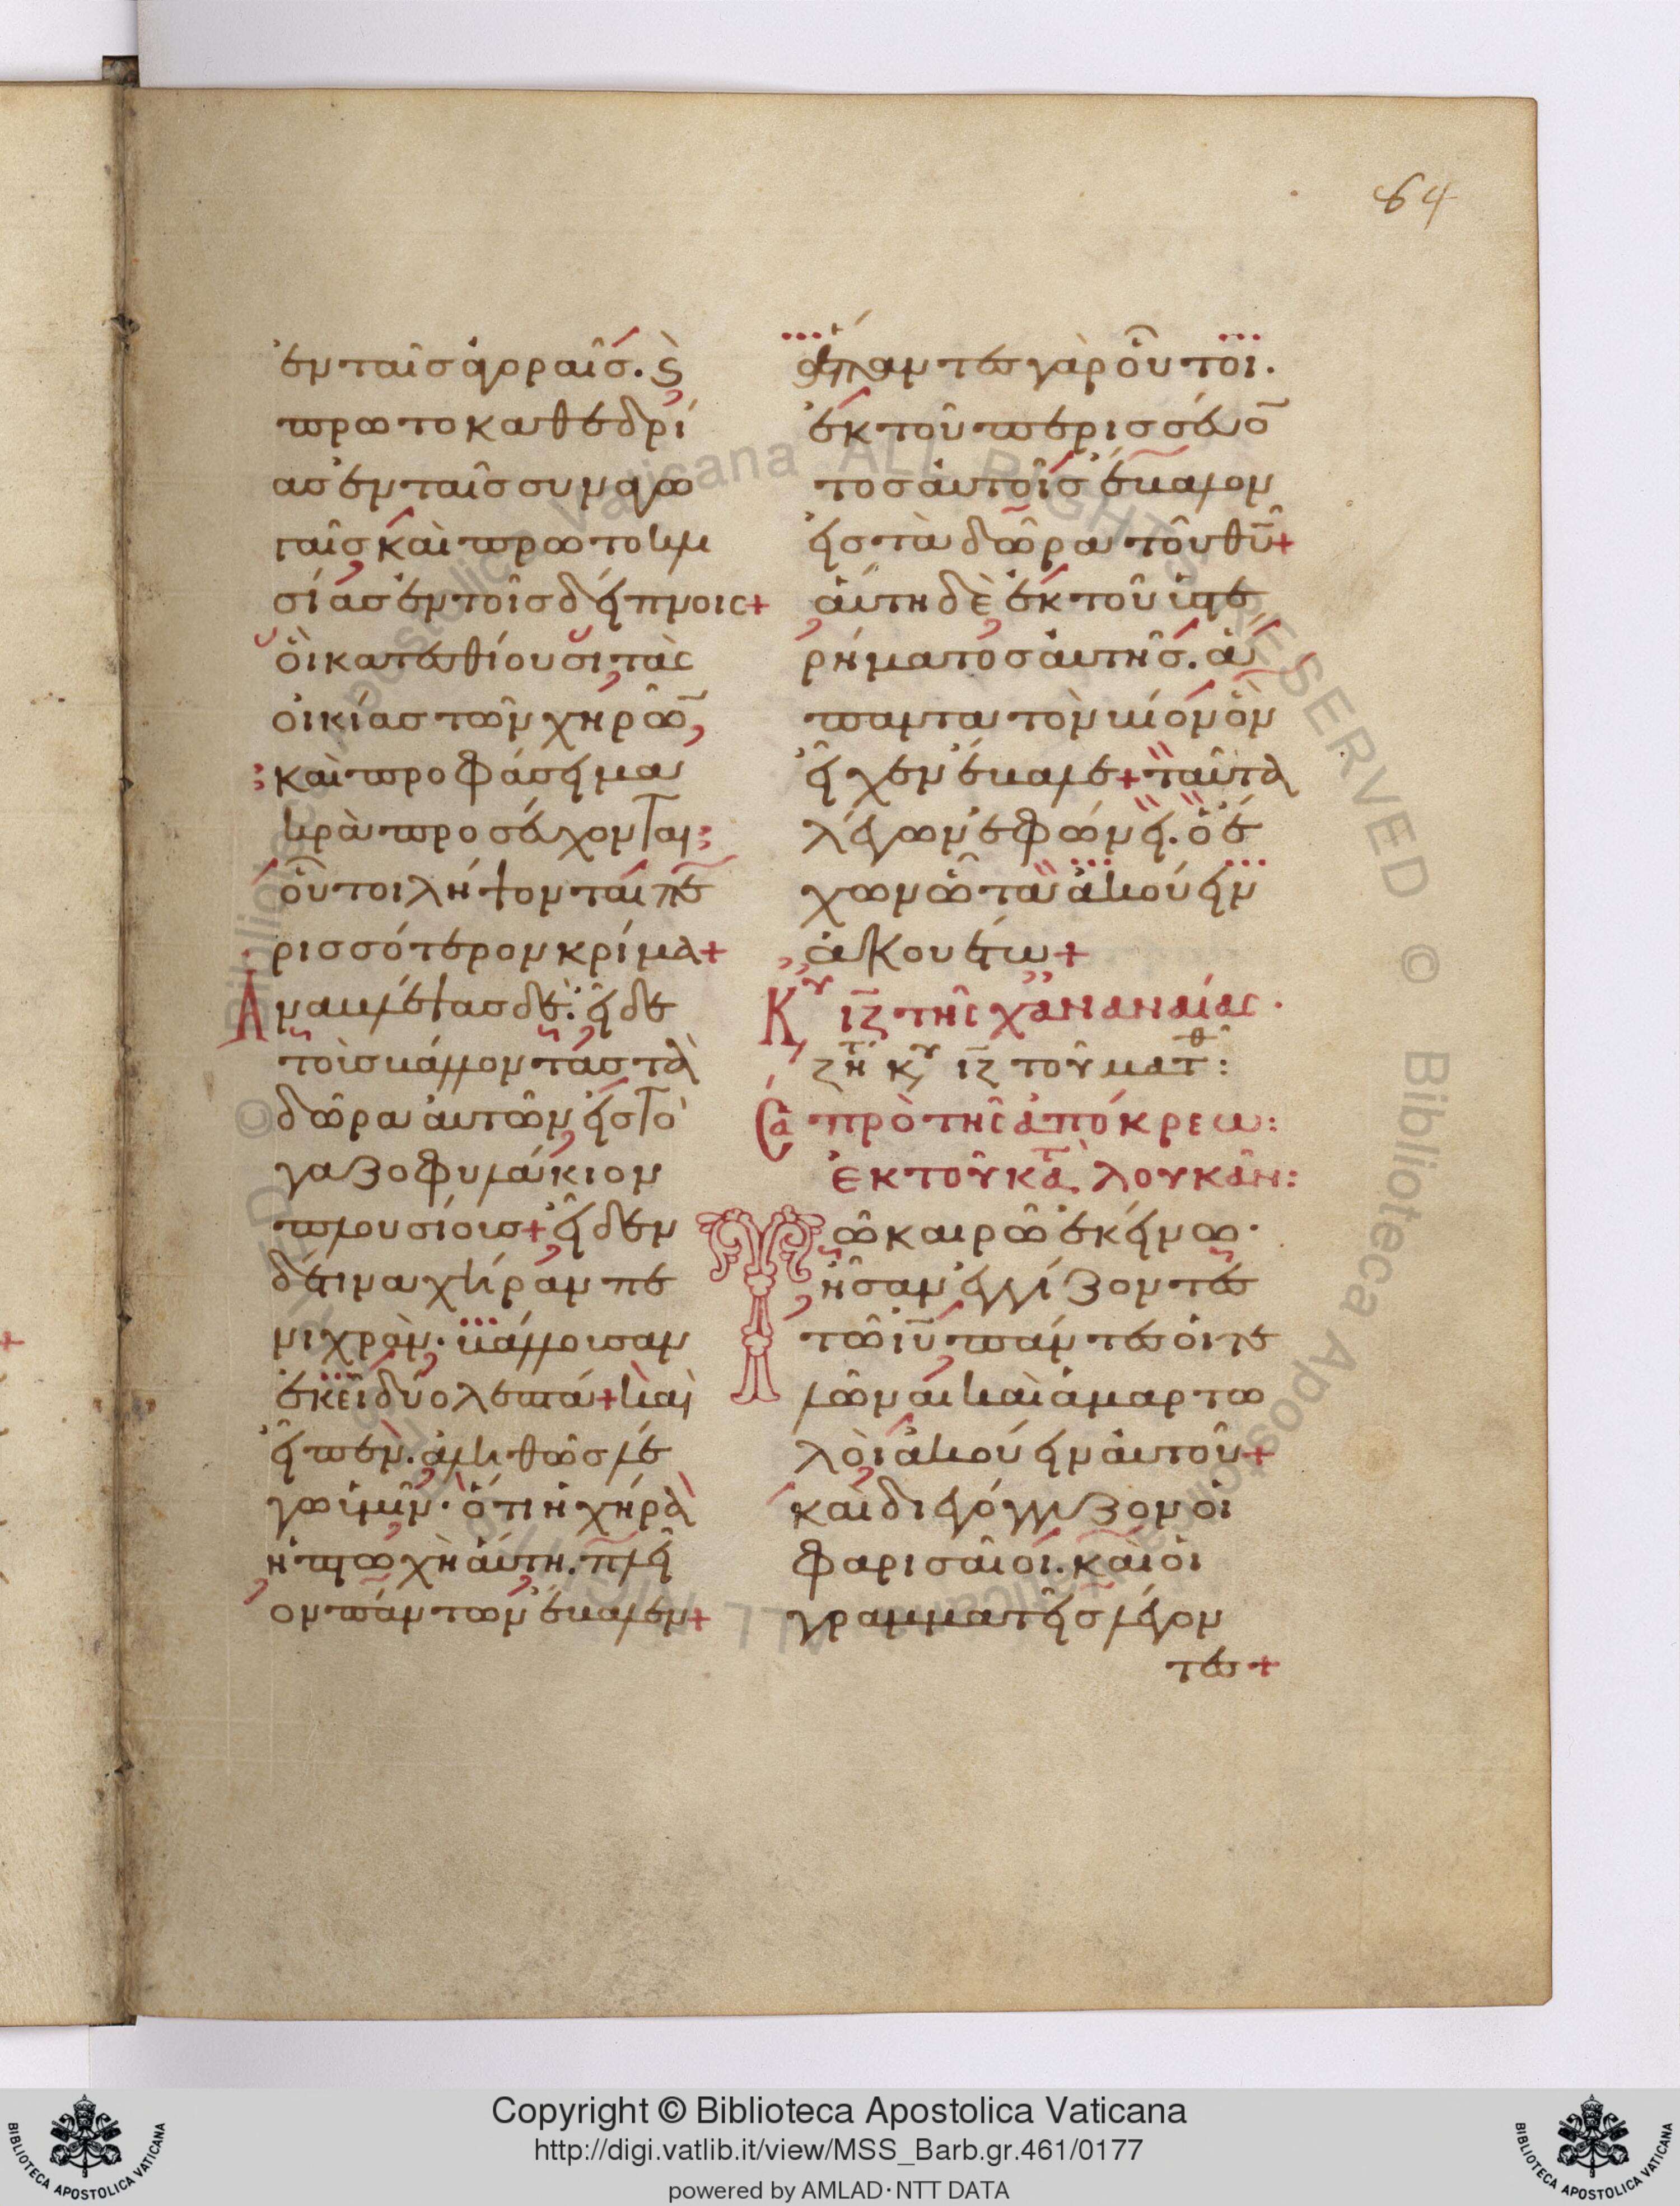 64
ἐν ταῖς ἀγοραῖς. ϗ
πρωτοκαθεδρί
ας ἐν ταῖς συναγω
γαῖς καὶ πρωτοκλι
σίας ἐν τοῖς δείπνοις+
οἳ κατεσθίουσι τὰς
οἰκίας τῶν χηρῶ̅,
καὶ προφάσει μα
κρὰ προσεύχονται
οὗτοι λήψονται πε
ρισσότερον κρίμα+
Αναβλέψας δὲ. εἶδε
τοὺς βάλλοντας τὰ
δῶρα αὐτῶν εἰς τὸ
γαζοφυλάκιον
πλουσίους+ εἶδεν
δέ τινα χήραν πε
νιχρὰν. βάλλουσαν
ἐκεῖ δύο λεπτά+ καὶ
εἶπεν. ἀληθῶς λέ
γω ὑμῖν. ὅτι ἡ χήρα
ἡ πτωχὴ αὕτη. πλεῖ
ον πάντων ἔβαλεν+
ἅπαντες γὰρ οὗτοι.
ἐκ τοῦ περισσεύο̅
τος αὐτοῖς ἔβαλον
εἰς τὰ δῶρα τοῦ θ̅υ̅+
αὕτη δὲ ἐκ τοῦ ὑστε
ρήματος αὐτῆς. ἅ
παντα τὸν βίον ὃν
εἶχεν ἔβαλε+ ταῦτα
λέγων ἐφώνει. ὁ ἔ
χων ὦτα ἀκούειν
ἀκουέτω+
Κυ ιζ τῆς χανααναίας.
ζητ κυ ιζ τοῦ ματθ:
Σα πρὸ τῆς ἀπόκρεω:
ἐκ τοῦ κατὰ λουκᾶν:
Τῶ καιρῶ ἐκείνω.
ἦσαν ἐγγίζοντες
τῶ ι̅υ̅ πάντες οἱ τε
λῶναι καὶ ἁμαρτω
λοὶ ἀκούειν αὐτοῦ+
καὶ διεγόγγυζον οἱ
φαρισαῖοι. καὶ οἱ
γραμματεῖς λέγον
τες+
Copyright © Biblioteca Apostolica Vaticana
http://digi.vatlib.it/view/MSS_Barb.gr.461/0177
powered by AMLAD·NTT DATA